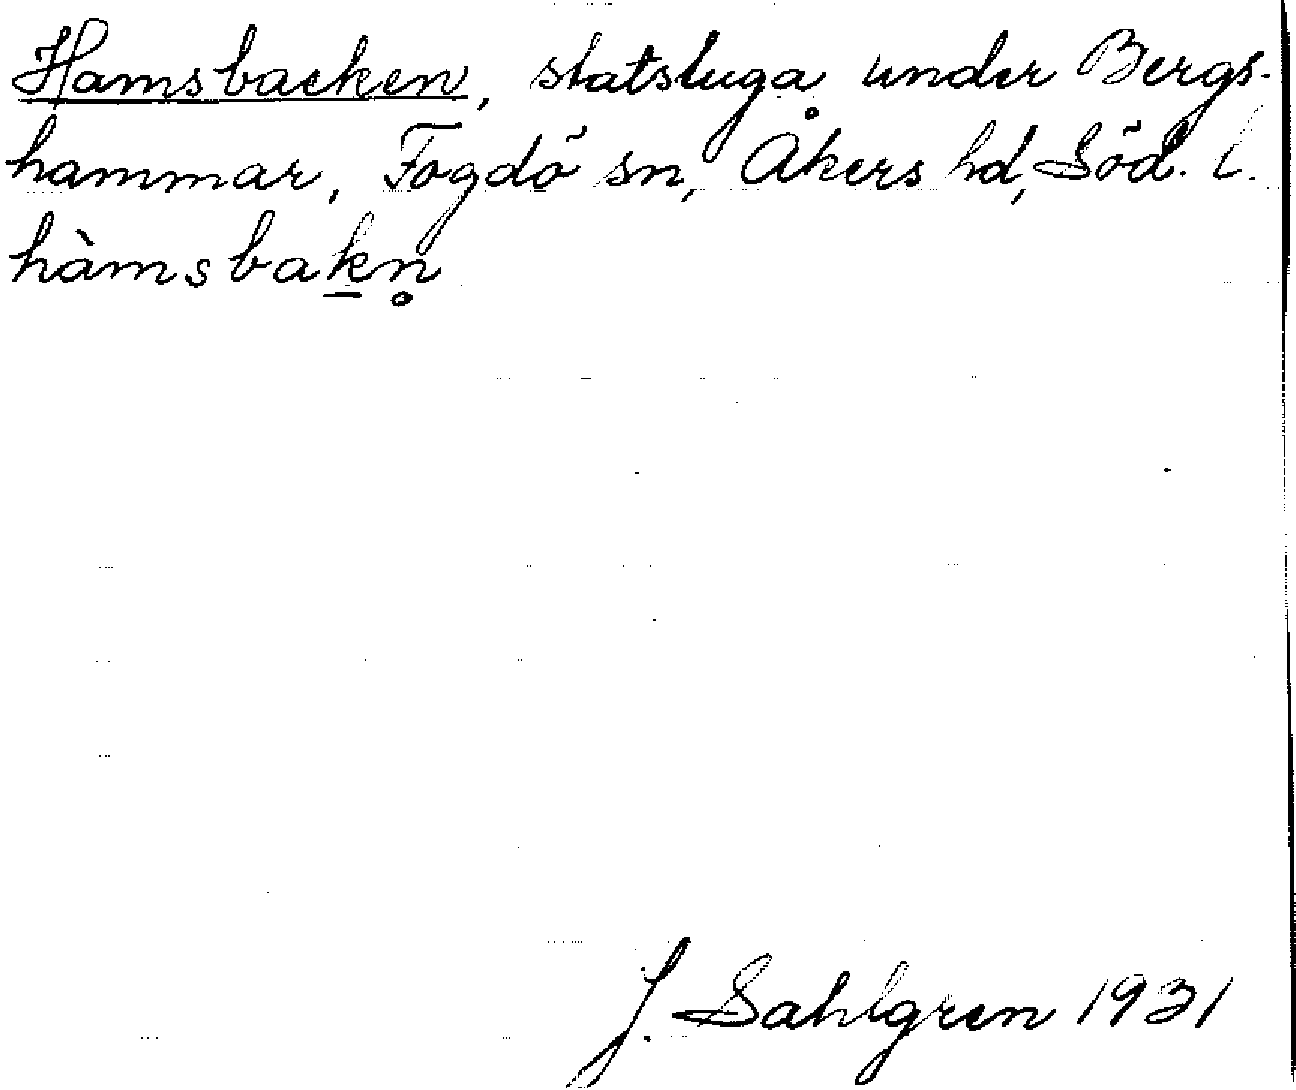 Hamsbacken, statstuga under Bergs-
hammar, Fogdö sn, Åkers hd, Söd. l.
hàmsbak̲n̥
J. Sahlgren 1931